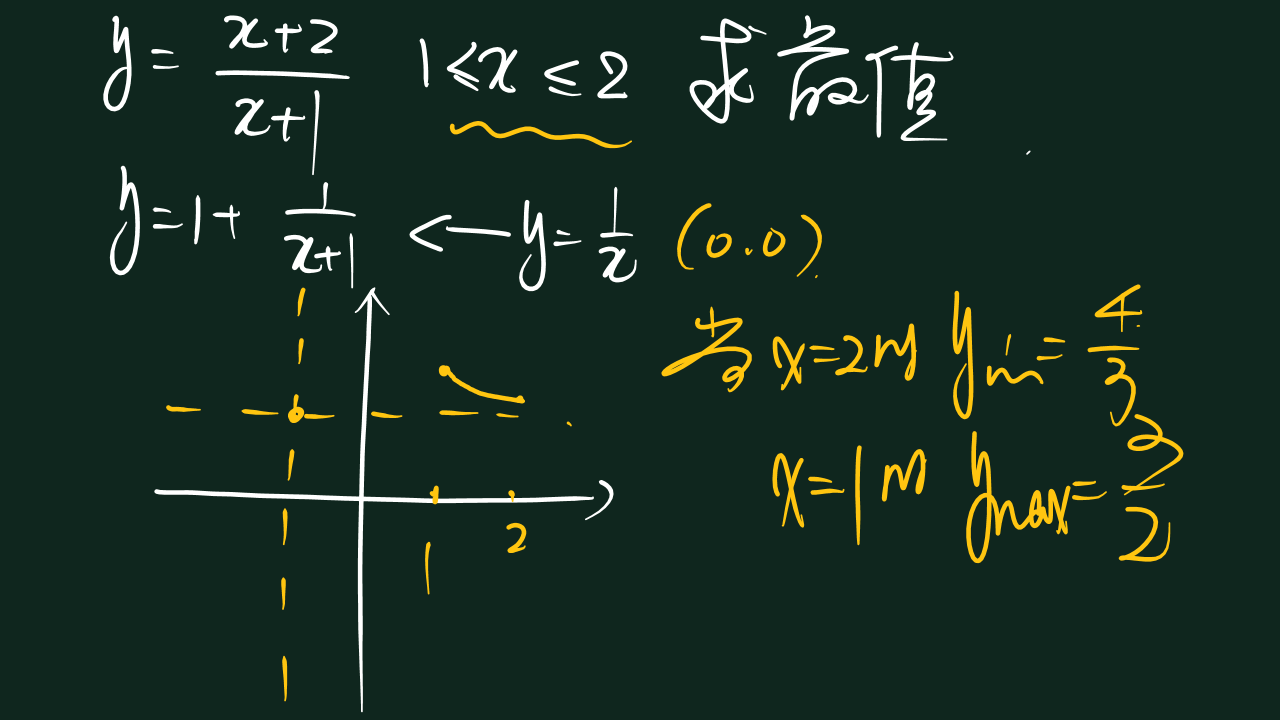 y = (x+2)/(x+1) 1≤x≤2 求最值
y=1+ 1/(x+1) ← y=1/x (0.0)
当 x=2时 ymin=4/3
x=1时 ymax=3/2
1 2